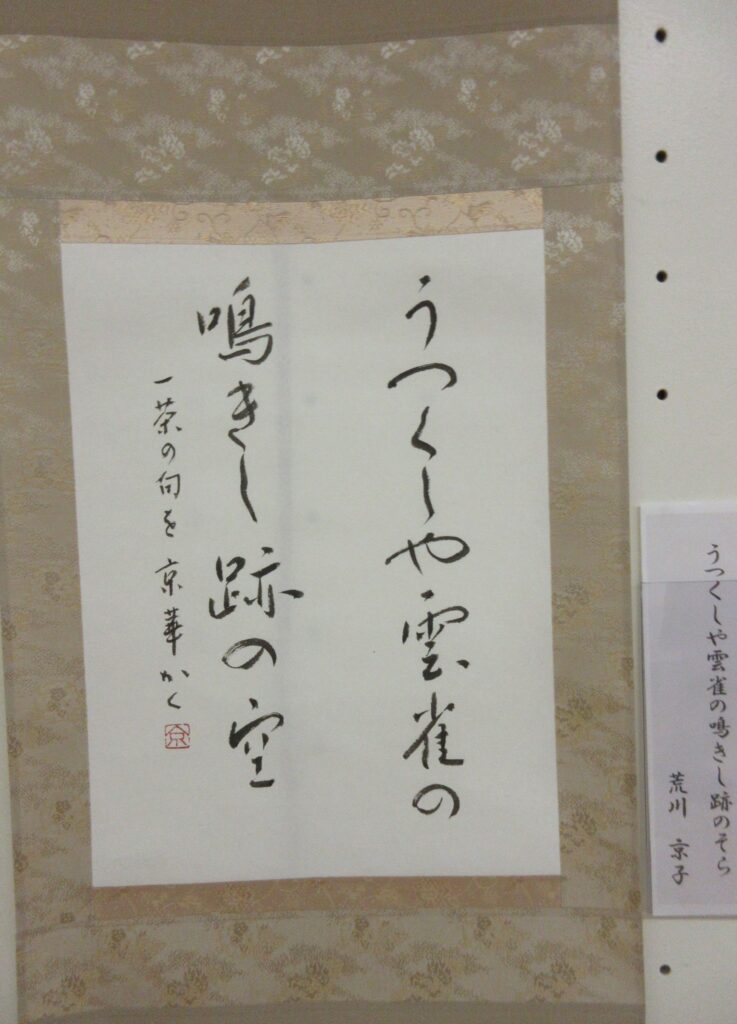 うつくしや雲雀の
鳴きし跡の空
一茶の句を 京華かく
京
うつくしや雲雀の鳴きし跡のそら
荒川 京子